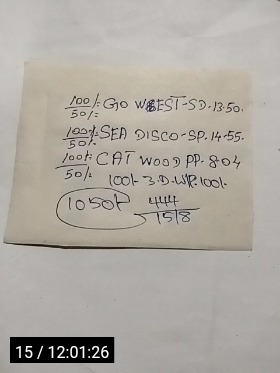 100/- GO WEST-SD-13-50.
50/-
100/- SEA DISCO-SP.14-55.
50/-
100/- CAT WOOD PP-8-04
50/-
100/- 3-D-WP.100/-
1050/- 444
1518
15 / 12:01:26